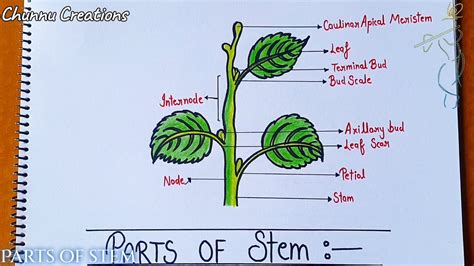 Chunnu Creations
Caulinar Apical Meristem
Leaf
Terminal Bud
Bud Scale
Internode
Axillary bud
Leaf Scar
Petial
Node
Stam
PARTS OF Stem :-
PARTS OF STEM